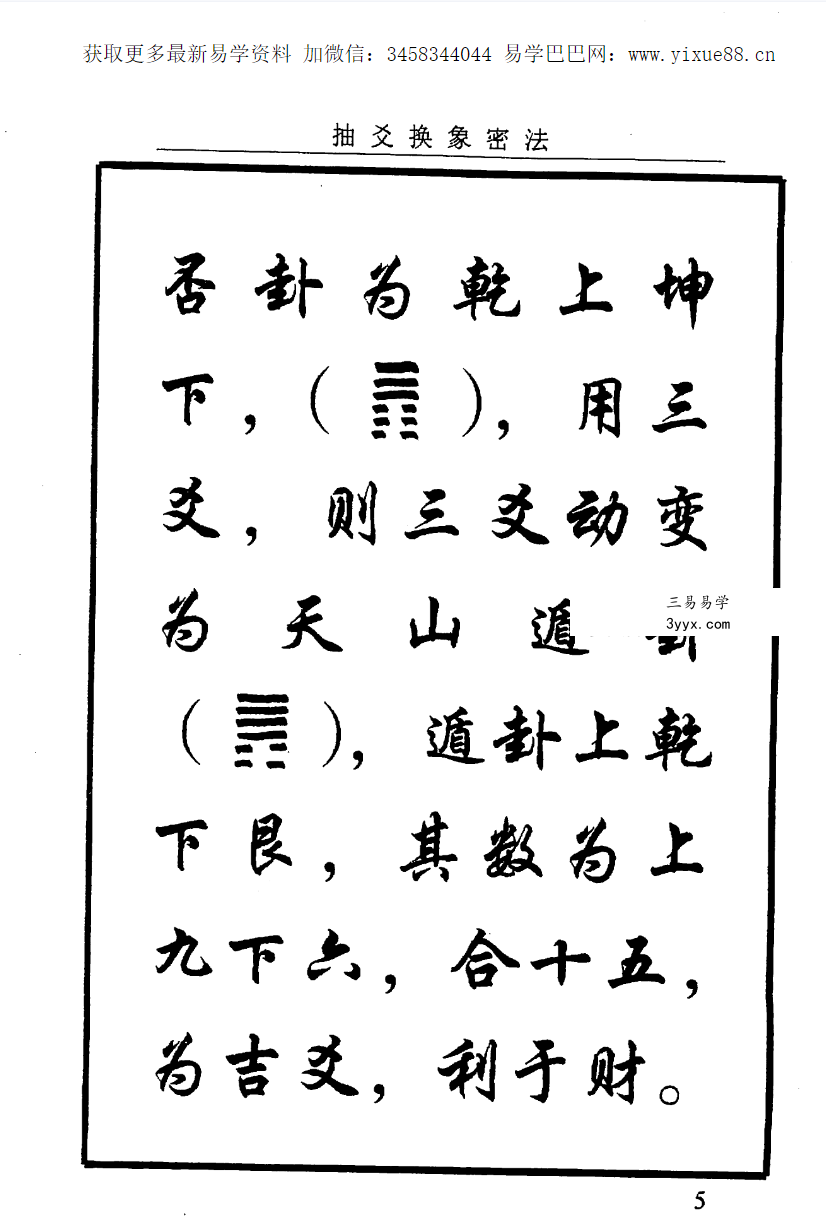 获取更多最新易学资料 加微信：3458344044 易学巴巴网：www.yixue88.cn
抽爻换象密法
否卦为乾上坤
下，（䷋），用三
爻，则三爻动变
为天山遁卦
三易易学
3yyx.com
（䷠），遁卦上乾
下艮，其数为上
九下六，合十五，
为吉爻，利于财。
5